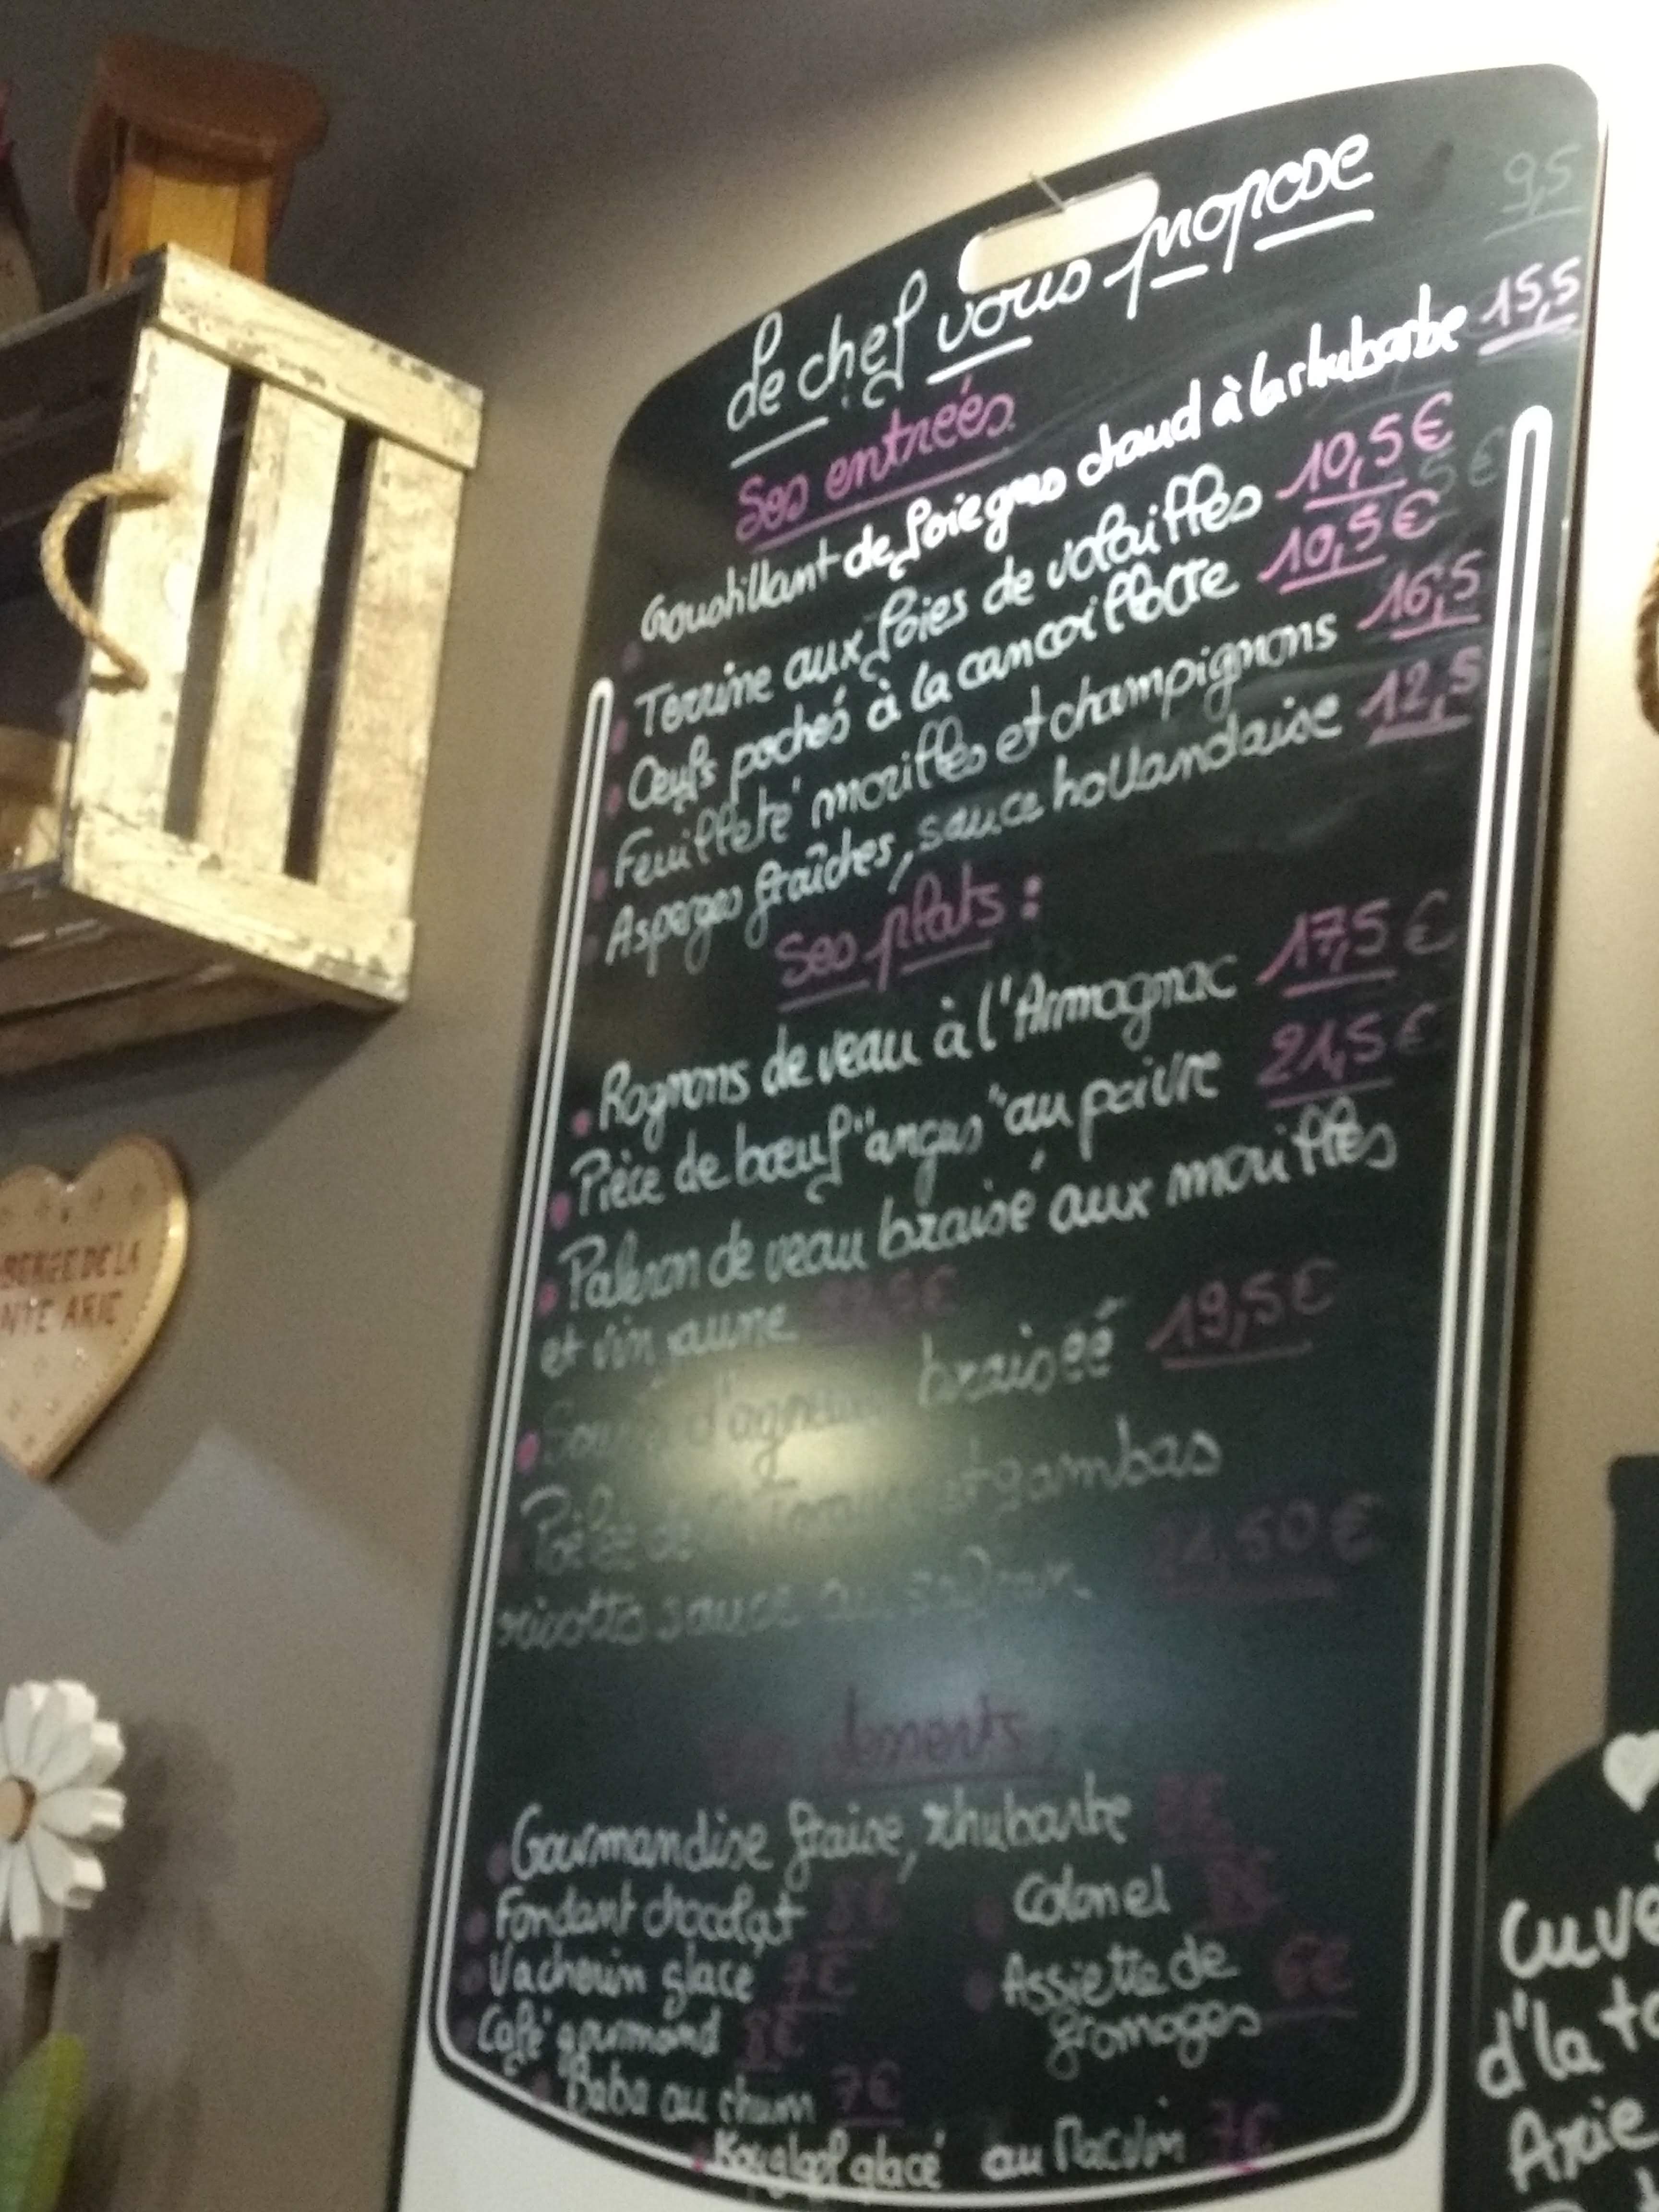 9,5
Le chef vous propose
Ses entrées
Croustillant de foie gras chaud à la rhubarbe 15,5
Terrine aux foies de volailles 10,5€
Oeufs pochés à la cancoillotte 10,5€
Feuilleté morilles et champignons 16,5
Asperges fraîches, sauce hollandaise 12,5
Ses plats :
Rognons de veau à l'Armagnac 17,5€
Pièce de bœuf "angus" au poivre 21,5€
Paleron de veau braisé aux morilles
et vin jaune
d'agneau braiséé 19,5€
Poêlée de et gambas
ricotta sauce au safran 21,50€
desserts
Gourmandise fraise, rhubarbe 8€
Fondant chocolat 8€
Colonel
Vacherin glacé 7€
Assiette de 6€
fromages
Café gourmand 8€
Baba au rhum 7€
Kouglopf glacé au Macvin 7€
BERGE DE LA
NTE ARIE
Cuve
d'la ta
Arie